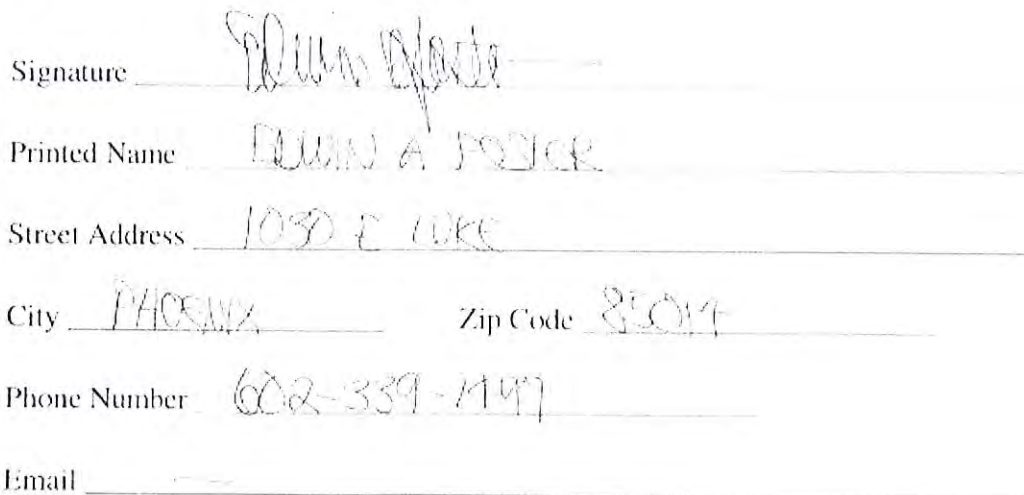 Signature Edwin A Foster
Printed Name EDWIN A FOSTER
Street Address 1030 E LUKE
City PHOENIX Zip Code 85014
Phone Number 602-339-1497
Email